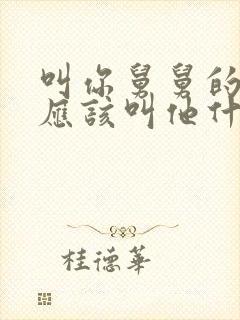 叫你舅舅的
應該叫他什
桂德華